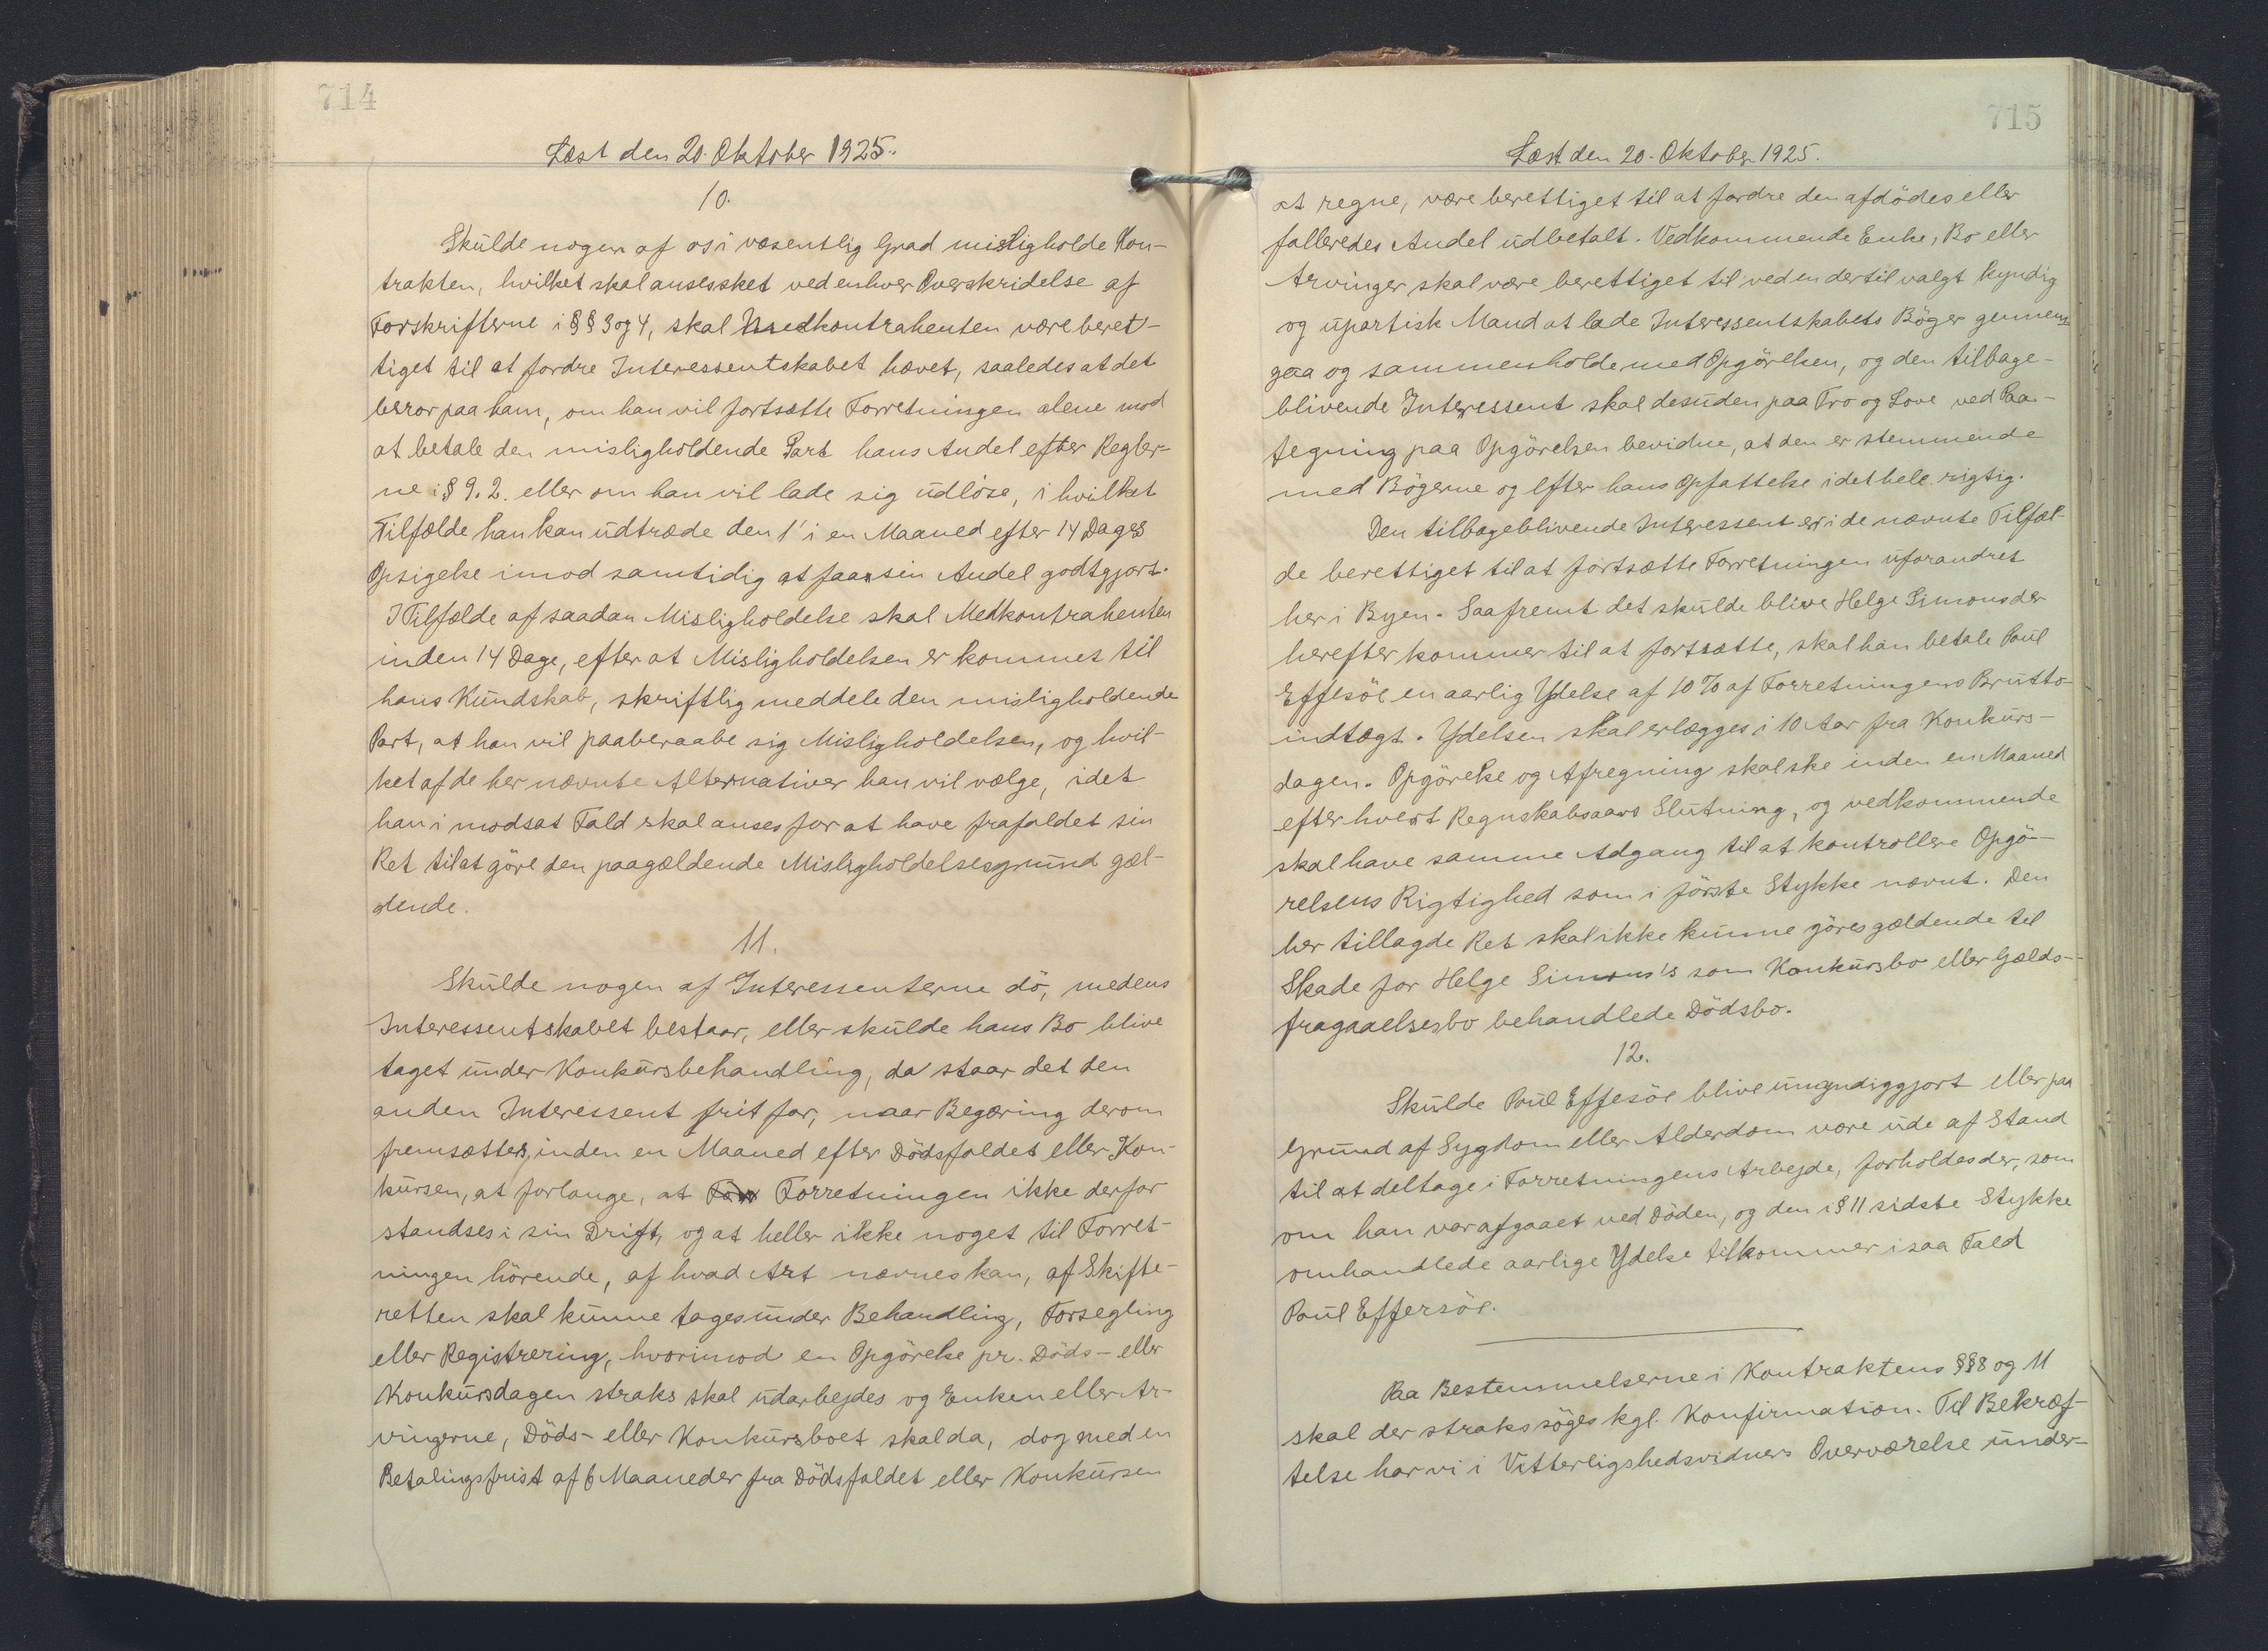 714
Læst den 20. Oktober 1925.
10.
Skulde nogen af os i væsentlig Grad misligholde Kon-
trakten, hvilket skal anses sket ved enhver Overskridelse af
Forskrifterne i §§ 3 og 4, skal Medkontrahenten være beret-
tiget til at fordre Interessentskabet hævet, saaledes at det
beror paa ham, om han vil fortsætte Forretningen alene mod
at betale den misligholdende Part hans Andel efter Regler-
ne i § 9. 2. eller om han vil lade sig udløse, i hvilket
Tilfælde han kan udtræde den 1' i en Maaned efter 14 Dages
Opsigelse imod samtidig at faa sin Andel godtgjort.
I Tilfælde af saadan Misligholdelse skal Medkontrahenten
inden 14 Dage, efter at Misligholdelsen er kommet til
hans Kundskab, skriftlig meddele den misligholdende
Part, at han vil paaberaabe sig Misligholdelsen, og hvil-
ket af de her nævnte Alternativer han vil vælge, idet
han i modsat Fald skal anses for at have frafaldet sin
Ret til at göre den paagældende Misligholdelsesgrund gæl-
dende.
11.
Skulde nogen af Interessenterne dö, medens
Interessentskabet bestaar, eller skulde hans Bo blive
taget under Konkursbehandling, da staar det den
anden Interessent frit for, naar Begæring derom
fremsættes, inden en Maaned efter Dödsfaldet eller Kon-
kursen, at forlange, at Forretningen ikke derfor
standses i sin Drift, og at heller ikke noget til Forret-
ningen hörende, af hvad Art nævnes kan, af Skifte-
retten skal kunne tages under Behandling, Forsegling
eller Registrering, hvorimod en Opgörelse pr. Döds- eller
Konkursdagen straks skal udarbejdes og Enken eller Ar-
vingerne, Döds- eller Konkursboet skal da, dog med en
Betalingsfrist af 6 Maaneder fra Dödsfaldet eller Konkursen
715
Læst den 20. Oktober 1925.
at regne, være berettiget til at fordre den afdödes eller
falleredes Andel udbetalt. Vedkommende Enke, Bo eller
Arvinger skal være berettiget til ved en dertil valgt kyndig
og upartisk Mand at lade Interessentskabets Böger gennem-
gaa og sammenholde med Opgörelsen, og den tilbage-
blivende Interessent skal desuden paa Tro og Love ved Paa-
tegning paa Opgörelsen bevidne, at den er stemmende
med Bögerne og efter hans Opfattelse i det hele rigtig.
Den tilbageblivende Interessent er i de nævnte Tilfæl-
de berettiget til at fortsætte Forretningen uforandret
her i Byen. Saafremt det skulde blive Helge Simons der
herefter kommer til at fortsætte, skal han betale Poul
Effesöe en aarlig Ydelse af 10 % af Forretningens Brutto-
indtægt. Ydelsen skal erlægges i 10 Aar fra Konkurs-
dagen. Opgörelse og Afregning skal ske inden en Maaned
efter hvert Regnskabsaars Slutning, og vedkommende
skal have samme Adgang til at kontrollere Opgö-
relsens Rigtighed som i förste Stykke nævnt. Den
her tillagde Ret skal ikke kunne göres gældende til
Skade for Helge Simons's som Konkursbo eller Gælds-
fragaaelsesbo behandlede Dödsbo.
12.
Skulde Poul Effesöe blive umyndiggjort eller paa
Grund af Sygdom eller Alderdom være ude af Stand
til at deltage i Forretningens Arbejde, forholdes der, som
om han var afgaaet ved Döden, og den i § 11 sidste Stykke
omhandlede aarlige Ydelse tilkommer i saa Fald
Poul Effersöe.
Paa Bestemmelserne i Kontraktens §§ 8 og 11
skal der straks söges kgl. Konfirmation. Til Bekræf-
telse har vi i Vitterligshedsvidners Overværelse under-